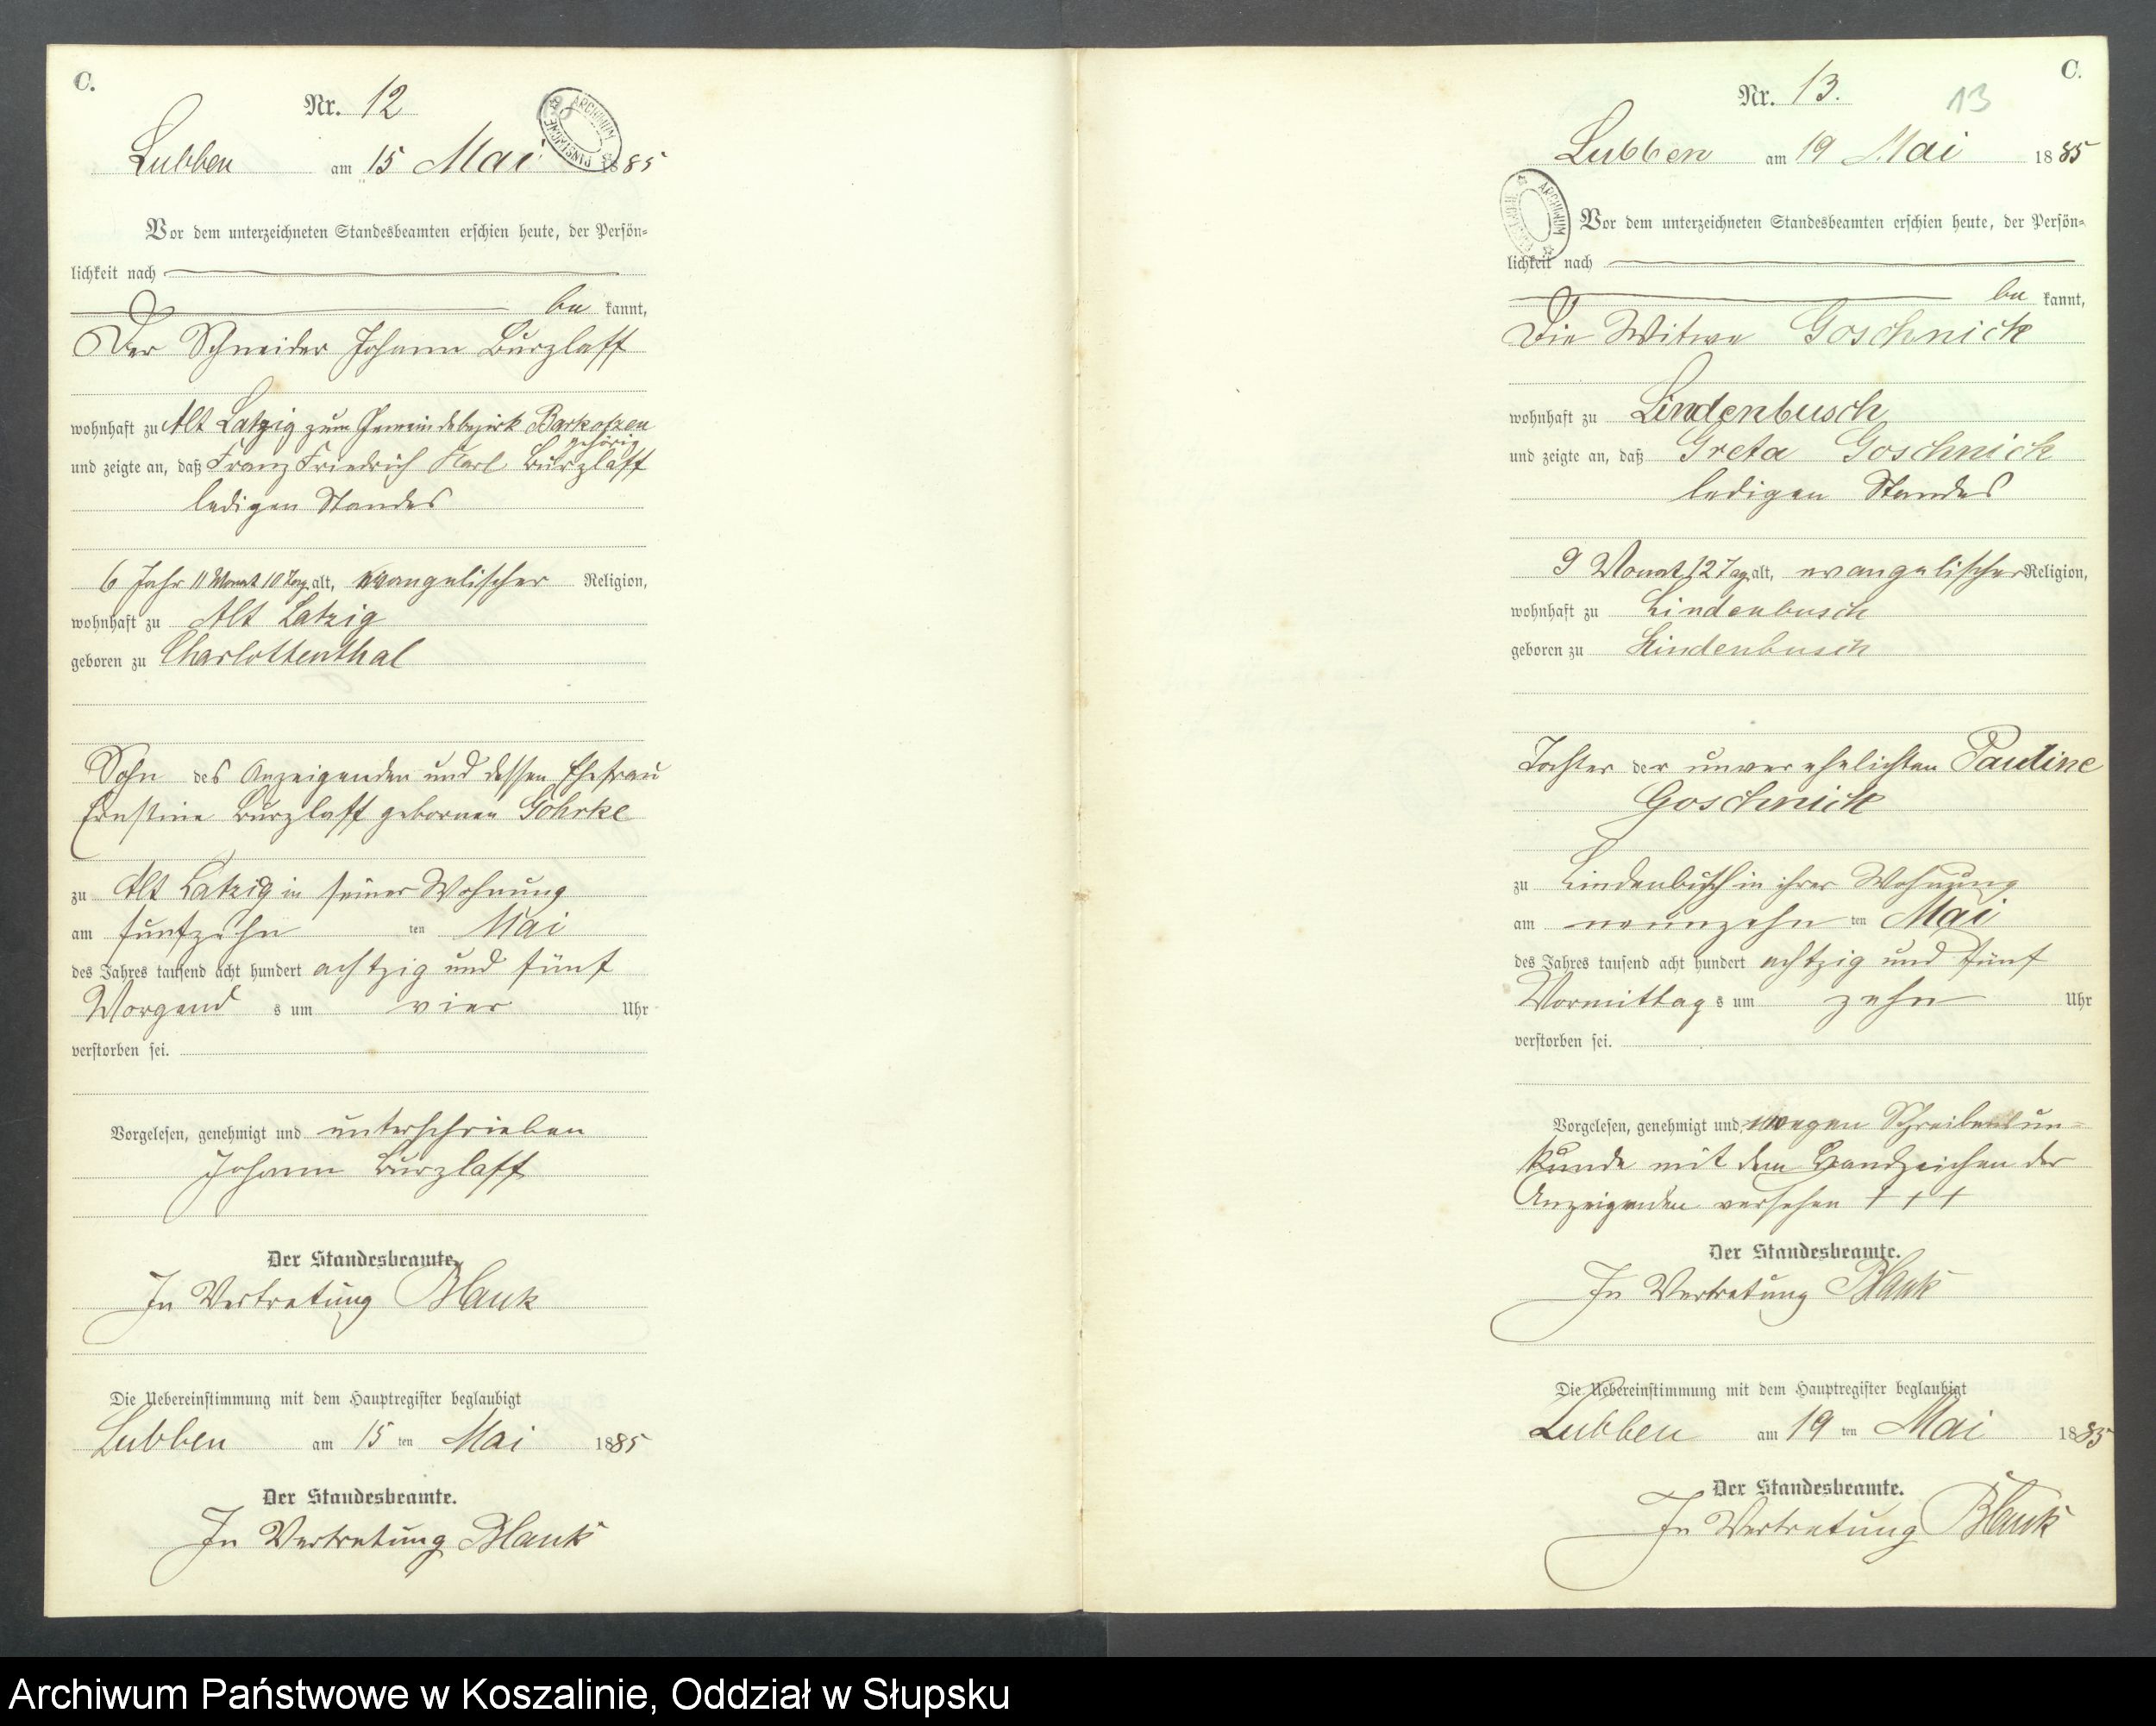 C.
Nr. 12
ARCHIWUM PAŃSTWOWE
Lubben am 15 Mai 1885
Vor dem unterzeichneten Standesbeamten erschien heute, der Persön=
lichkeit nach
be kannt,
Der Schneider Johann Burzlaff
wohnhaft zu Alt Latzig zum Gemeindebezirk Barkotzen
gehörig
und zeigte an, daß Franz Friedrich Karl Burzlaff
ledigen Standes
6 Jahr 11 Monat 10 Tag alt, evangelischer Religion,
wohnhaft zu Alt Latzig
geboren zu Charlottenthal
Sohn des Anzeigenden und dessen Ehefrau
Ernstine Burzlaff gebornen Göhrke
zu Alt Latzig in seiner Wohnung
am fünfzehn ten Mai
des Jahres tausend acht hundert achtzig und fünf
Morgend s um vier Uhr
verstorben sei.
Vorgelesen, genehmigt und unterschrieben
Johann Burzlaff
Der Standesbeamte.
In Vertretung Blank
Die Uebereinstimmung mit dem Hauptregister beglaubigt
Lubben am 15 ten Mai 1885
Der Standesbeamte.
In Vertretung Blank
C.
Nr. 13.
13
Lubben am 19 Mai 1885
ARCHIWUM
Vor dem unterzeichneten Standesbeamten erschien heute, der Persön=
lichkeit nach
be kannt,
Die Witwe Goschnick
wohnhaft zu Lindenbusch
und zeigte an, daß Greta Goschnick
ledigen Standes
9 Monat 12 Tag alt, evangelischer Religion,
wohnhaft zu Lindenbusch
geboren zu Lindenbusch
Tochter der unverehelichten Pauline
Goschnick
zu Lindenbusch in ihrer Wohnung
am neunzehn ten Mai
des Jahres tausend acht hundert achtzig und fünf
Vormittag s um zehn Uhr
verstorben sei.
Vorgelesen, genehmigt und wegen Schreibens un=
kunde mit dem Handzeichen der
Anzeigenden versehen + + +
Der Standesbeamte.
In Vertretung Blank
Die Uebereinstimmung mit dem Hauptregister beglaubigt
Lubben am 19 ten Mai 1885
Der Standesbeamte.
In Vertretung Blank
Archiwum Państwowe w Koszalinie, Oddział w Słupsku